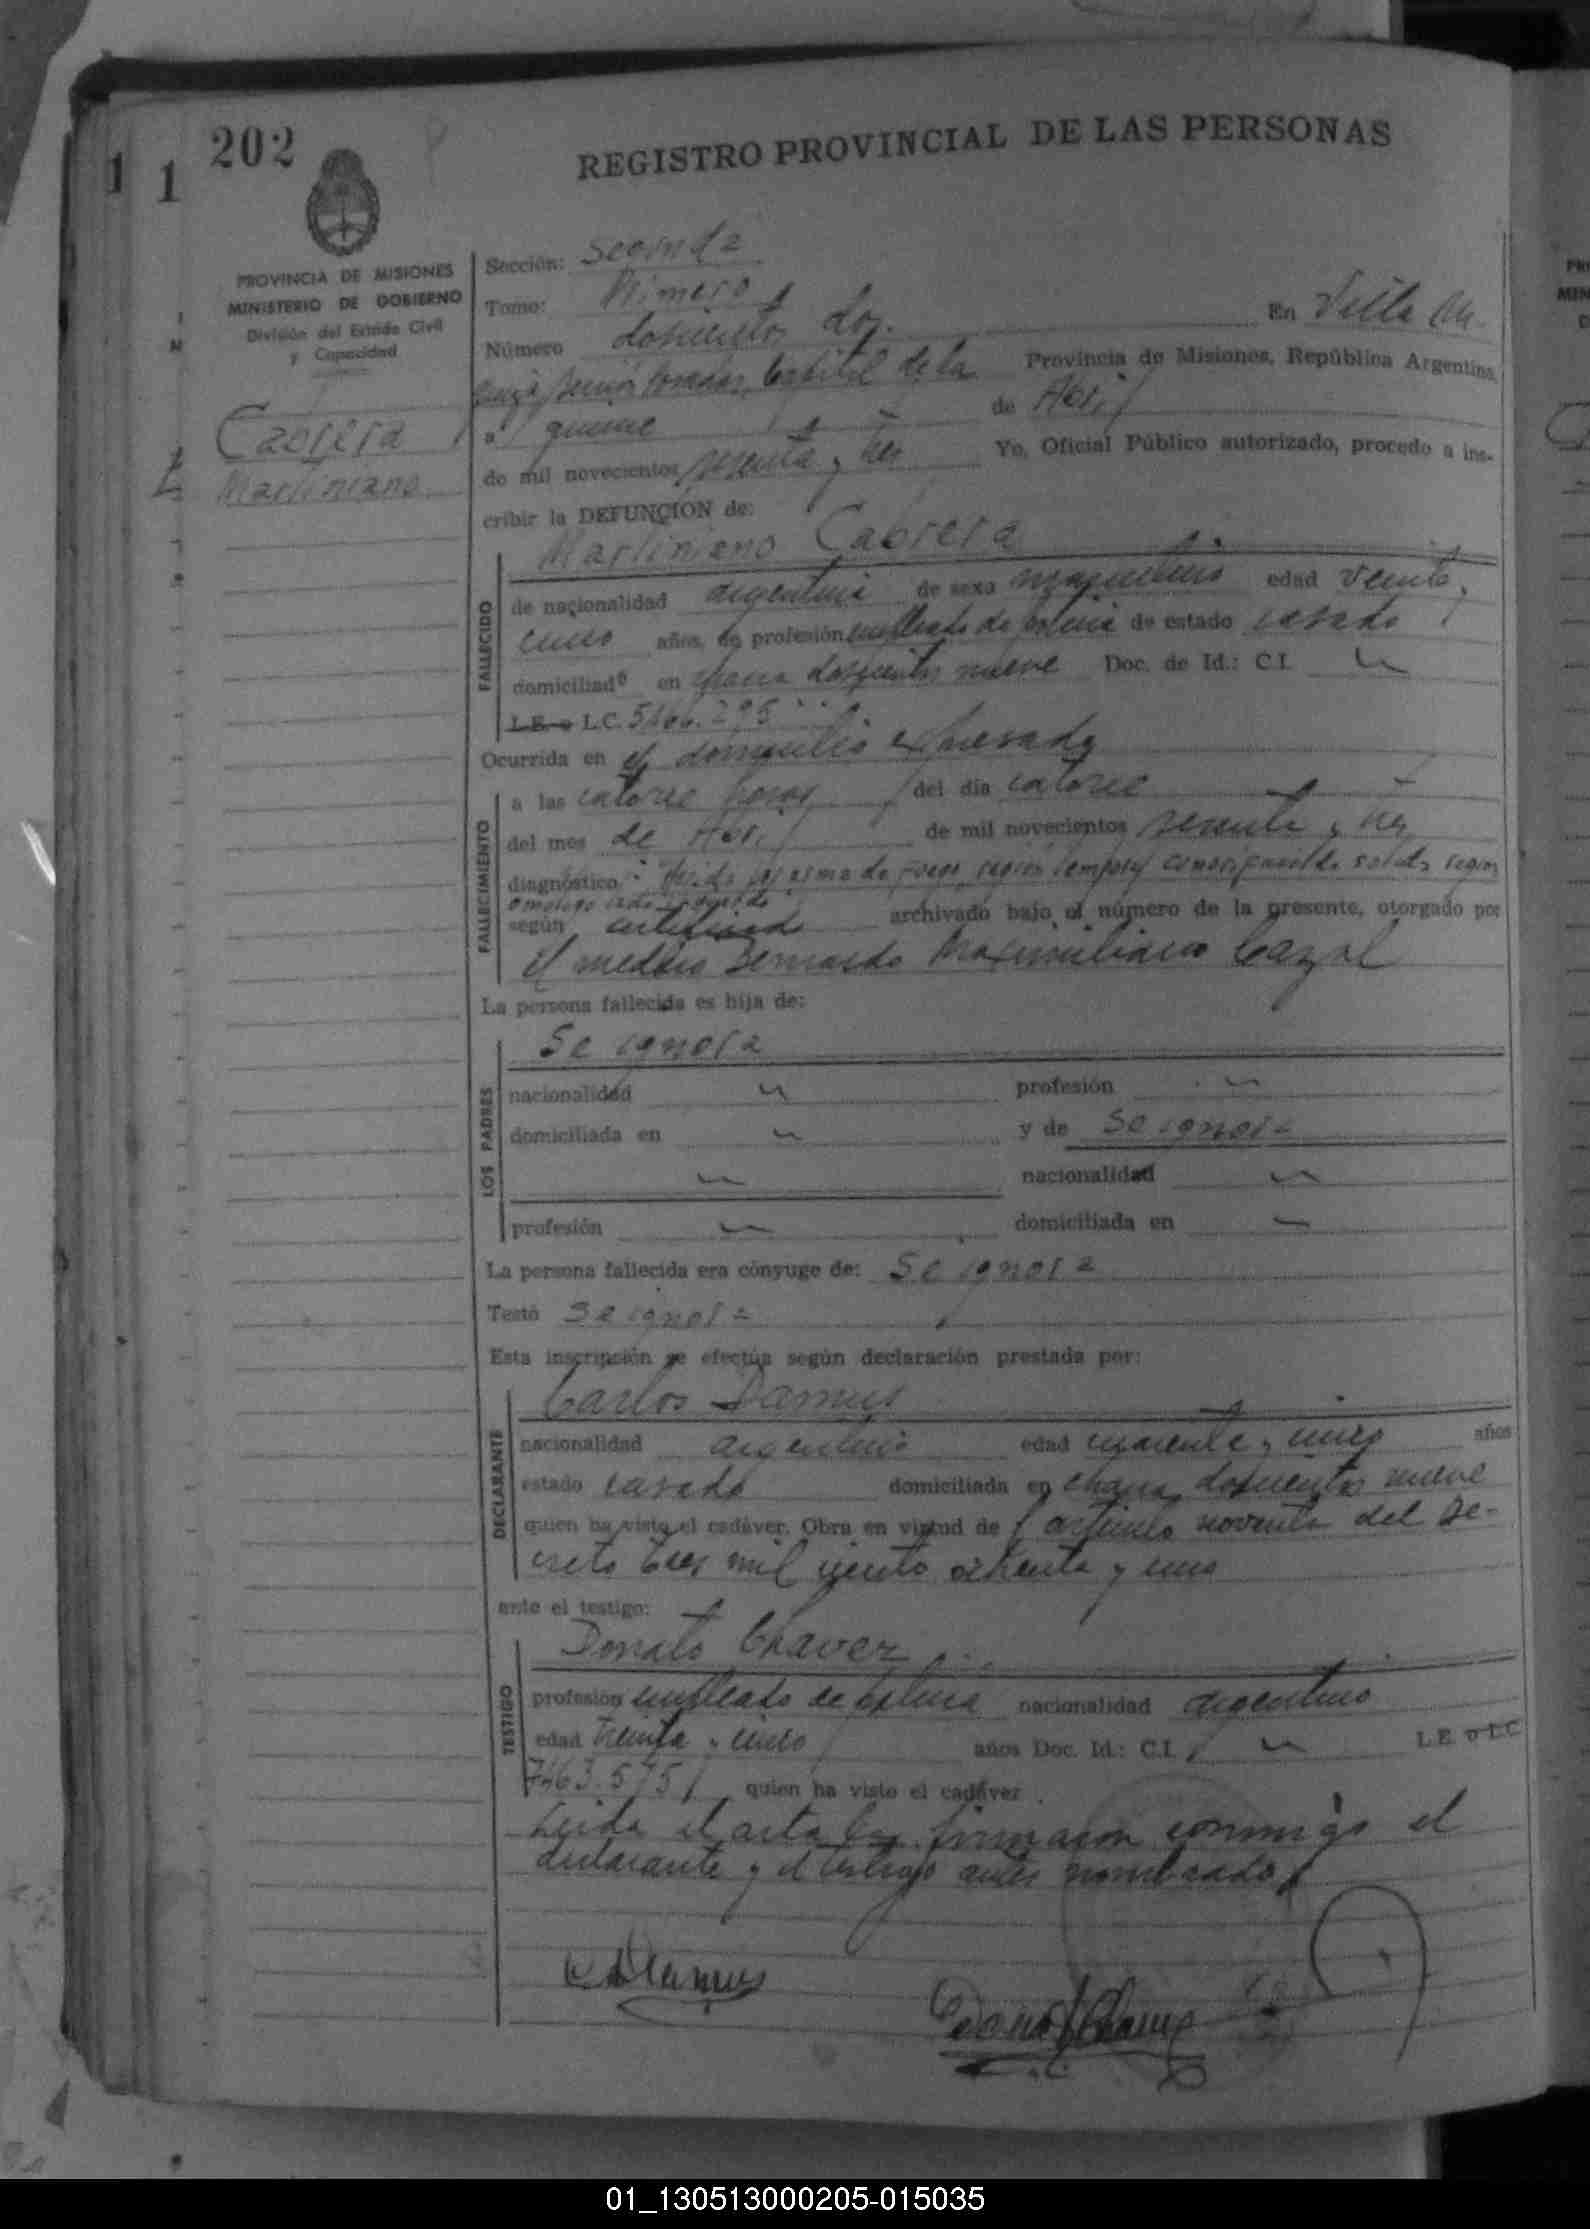 202
REGISTRO PROVINCIAL DE LAS PERSONAS
1 1
PROVINCIA DE MISIONES
MINISTERIO DE GOBIERNO
División del Estado Civil
y Capacidad
Cabrera
Martiniano
Sección: Segunda
Tomo: Primero
Número doscientos dos. En Villa
Posadas, Capital de la Provincia de Misiones, República Argentina,
a quince de Abril
de mil novecientos sesenta y tres Yo, Oficial Público autorizado, procedo a ins-
cribir la DEFUNCIÓN de:
Martiniano Cabrera
FALLECIDO
de nacionalidad argentina de sexo masculino edad veinte y
cinco años, de profesión empleado de policia de estado casado
domiciliado en chacra doscientos nueve Doc. de Id.: C.I.
L.E. o L.C.
Ocurrida en el domicilio expresado
FALLECIMIENTO
a las catorce horas del día catorce
del mes de Abril de mil novecientos sesenta y tres
diagnóstico: herida por arma de fuego region temporal con orificio de salida region
según certificado archivado bajo el número de la presente, otorgado por
el medico Bernardo Maximiliano Cazal
La persona fallecida es hija de:
LOS PADRES
Se ignora
nacionalidad profesión
domiciliada en y de Se ignora
nacionalidad
profesión domiciliada en
La persona fallecida era cónyuge de: Se ignora
Testó Se ignora
Esta inscripción se efectúa según declaración prestada por:
DECLARANTE
Carlos Damus
nacionalidad argentino edad cuarenta y cinco años
estado casado domiciliada en chacra doscientos nueve
quien ha visto el cadáver. Obra en virtud del articulo noventa del De-
creto tres mil ciento ochenta y uno
ante el testigo:
TESTIGO
Donato Chavez
profesión empleado de policia nacionalidad argentino
edad treinta y cinco años Doc. Id.: C.I. L.E. o L.C.
7463.575 quien ha visto el cadáver.
Leida el acta la firmaron conmigo el
declarante y el testigo antes nombrado
01_130513000205-015035